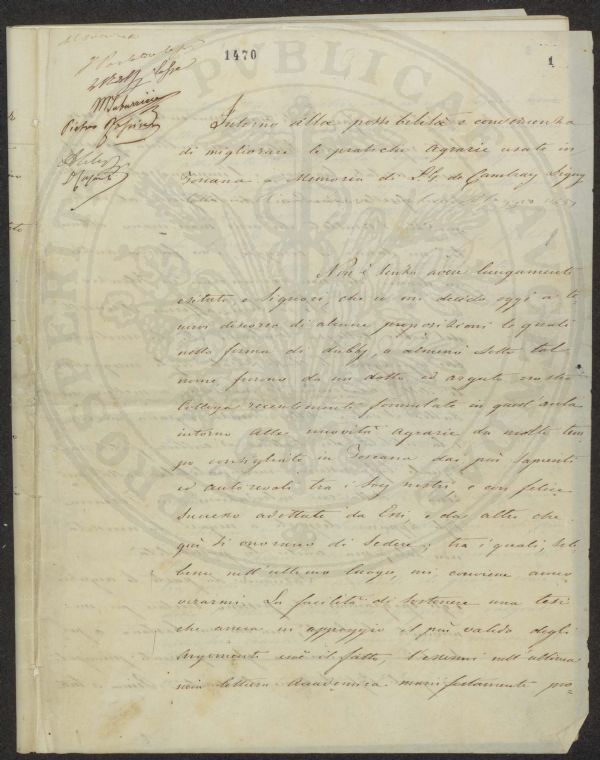 1470
1
Pietro
Intorno alla possibilità e convenienza
di migliorare le pratiche agrarie usate in
Toscana. Memoria di L. G. de Cambray Digny
Non è senza avere lungamente
esitato o Signori, che io mi decido oggi a te
nervi discorso di alcune proposizioni le quali
nella forma di dubbj, o almeno sotto tal
nome furono da un dotto ed arguto nostro
Collega recentemente formulate in quest'aula
intorno alle novità agrarie da molto tem
po consigliate in Toscana dai più sapienti
ed autorevoli tra i Socj nostri, e con felice
successo adottate da Essi, e da altri che
quì si onorano di sedere; tra i quali, seb
bene nell'ultimo luogo, mi conviene anno
verarmi. La facilità di sostenere una tesi
che aveva in appoggio il più valido degli
argomenti cioè il fatto, l'essermi nell'ultima
mia lettura Accademica manifestamente pro=